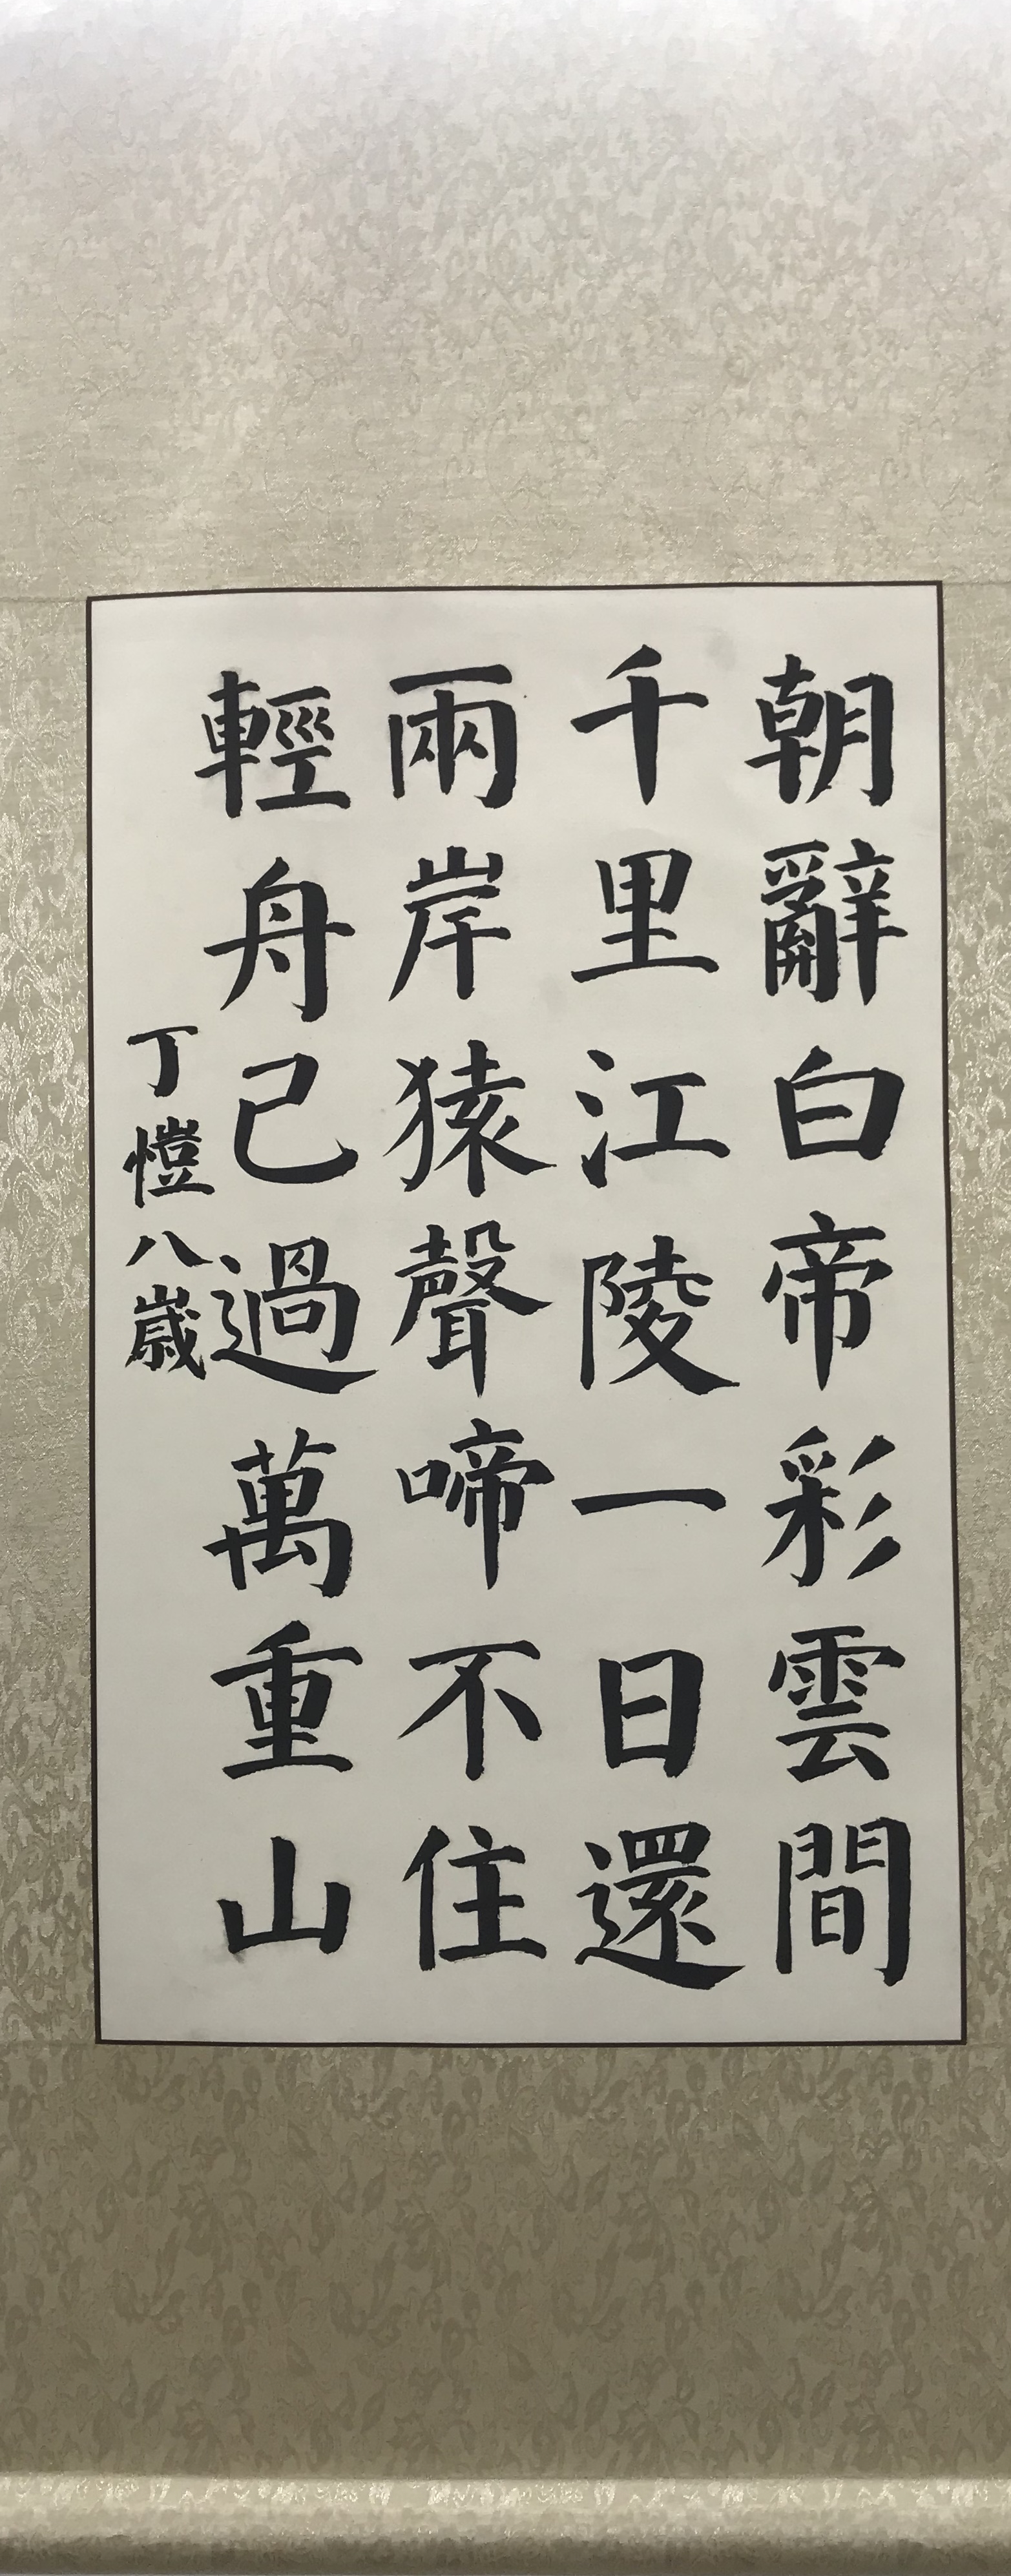 朝辭白帝彩雲間
千里江陵一日還
兩岸猿聲啼不住
輕舟已過萬重山
丁愷八歲